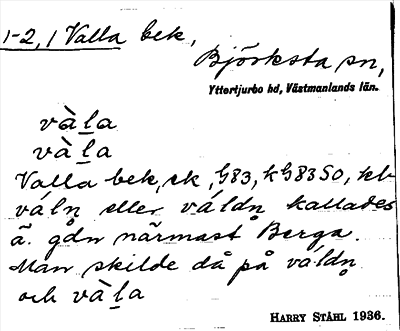 1-2, 1 Valla bek,
Björksta sn,
Yttertjurbo hd, Västmanlands län.
và l̲a
và l̲a
Valla bek, ek, G83, kG83SO, kb
váln̥ eller váldn̥ kallades
ä. gdn närmast Berga.
Man skilde då på váldn̥
och và l̲a
HARRY STÅHL 1936.